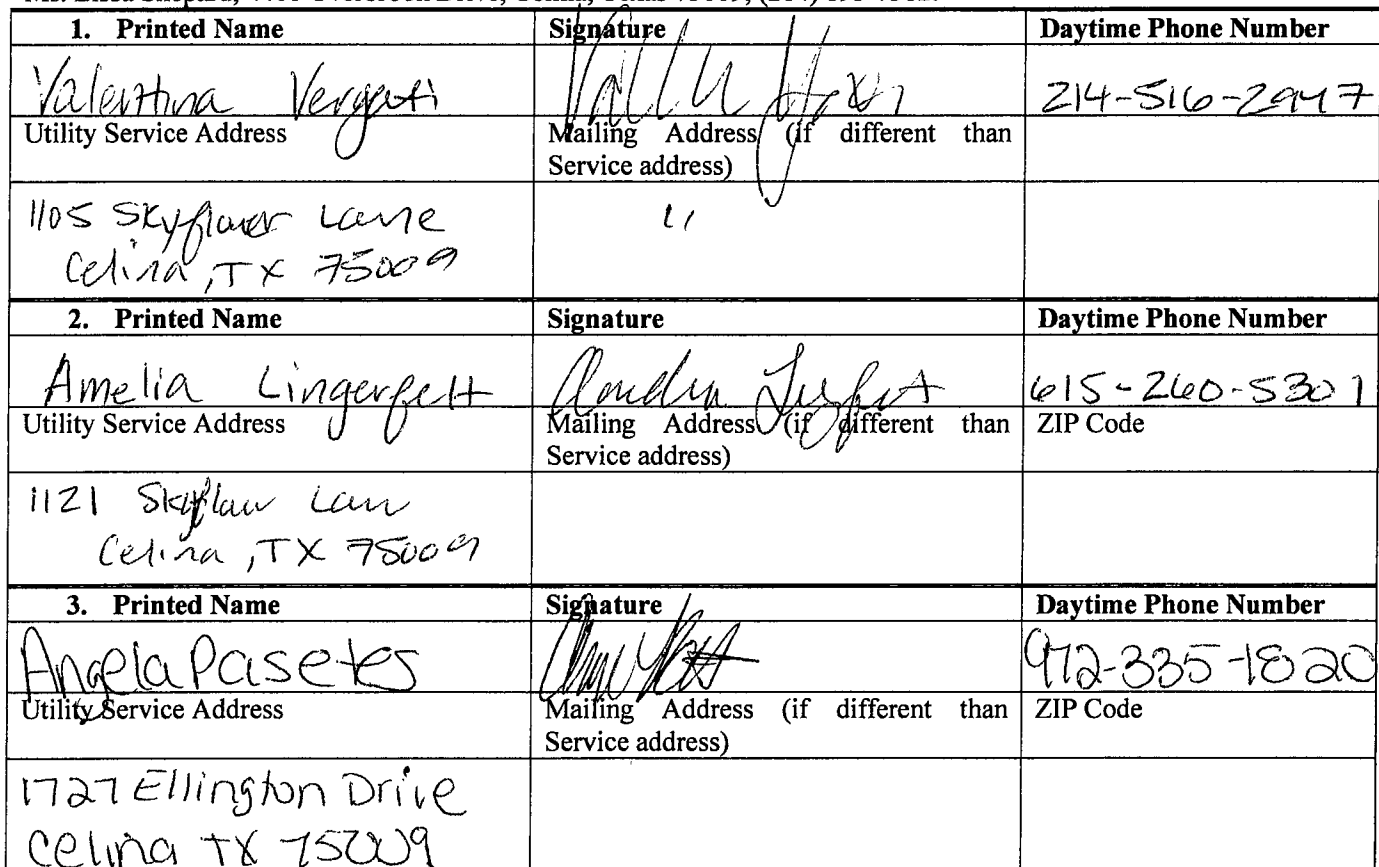 1. Printed Name Signature Daytime Phone Number
Valentina Vergati 214-516-2947
Utility Service Address Mailing Address (if different than
Service address)
1105 Skyflower Lane "
Celina, TX 75009
2. Printed Name Signature Daytime Phone Number
Amelia Lingerfelt 615-260-5301
Utility Service Address Mailing Address (if different than ZIP Code
Service address)
1121 Skyflaw Lan
Celina, TX 75009
3. Printed Name Signature Daytime Phone Number
Angela Paseter 972-335-1820
Utility Service Address Mailing Address (if different than ZIP Code
Service address)
1727 Ellington Drive
Celina TX 75009